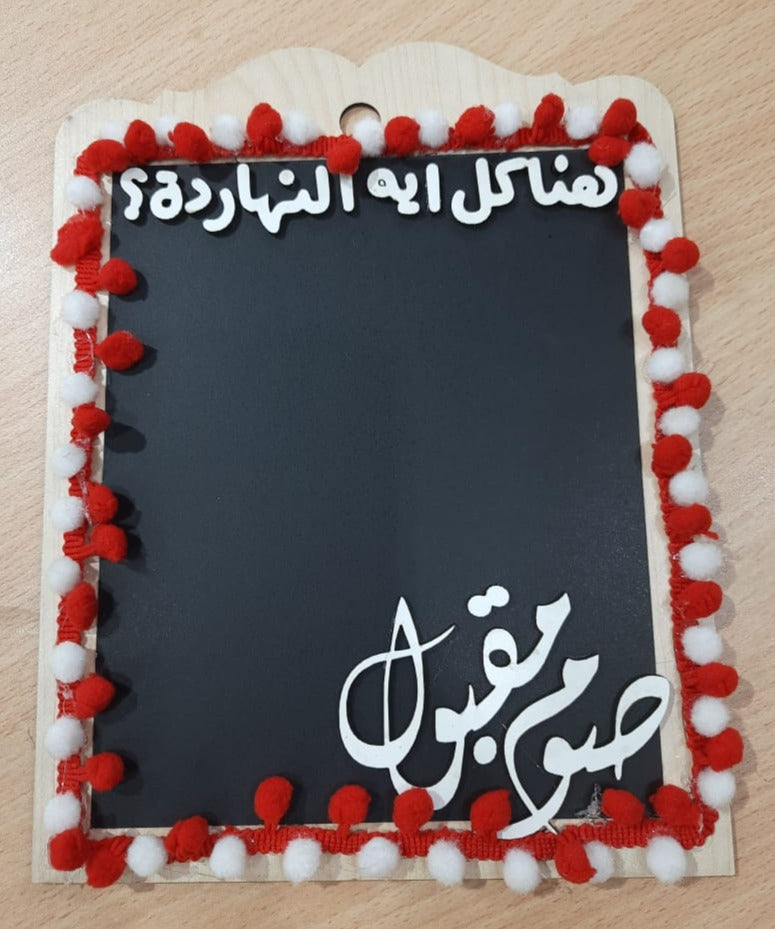 هناكل ايه النهاردة؟
صوم مقبول